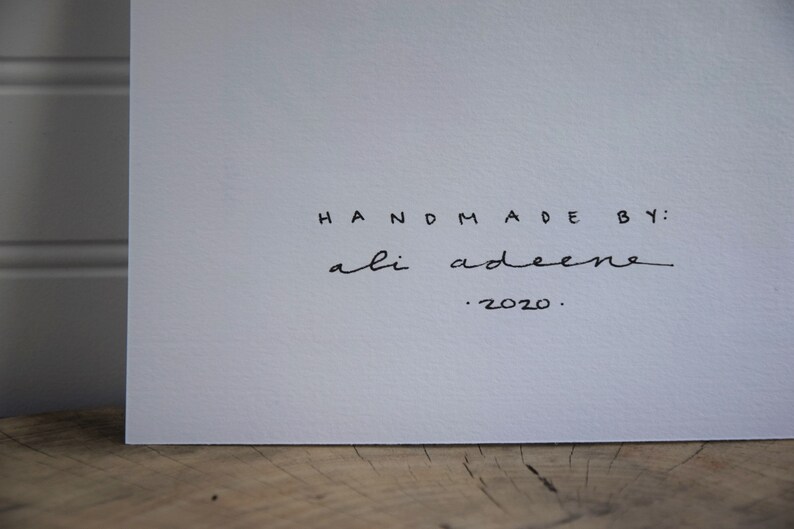 HANDMADE BY:
ali adeene
·2020·